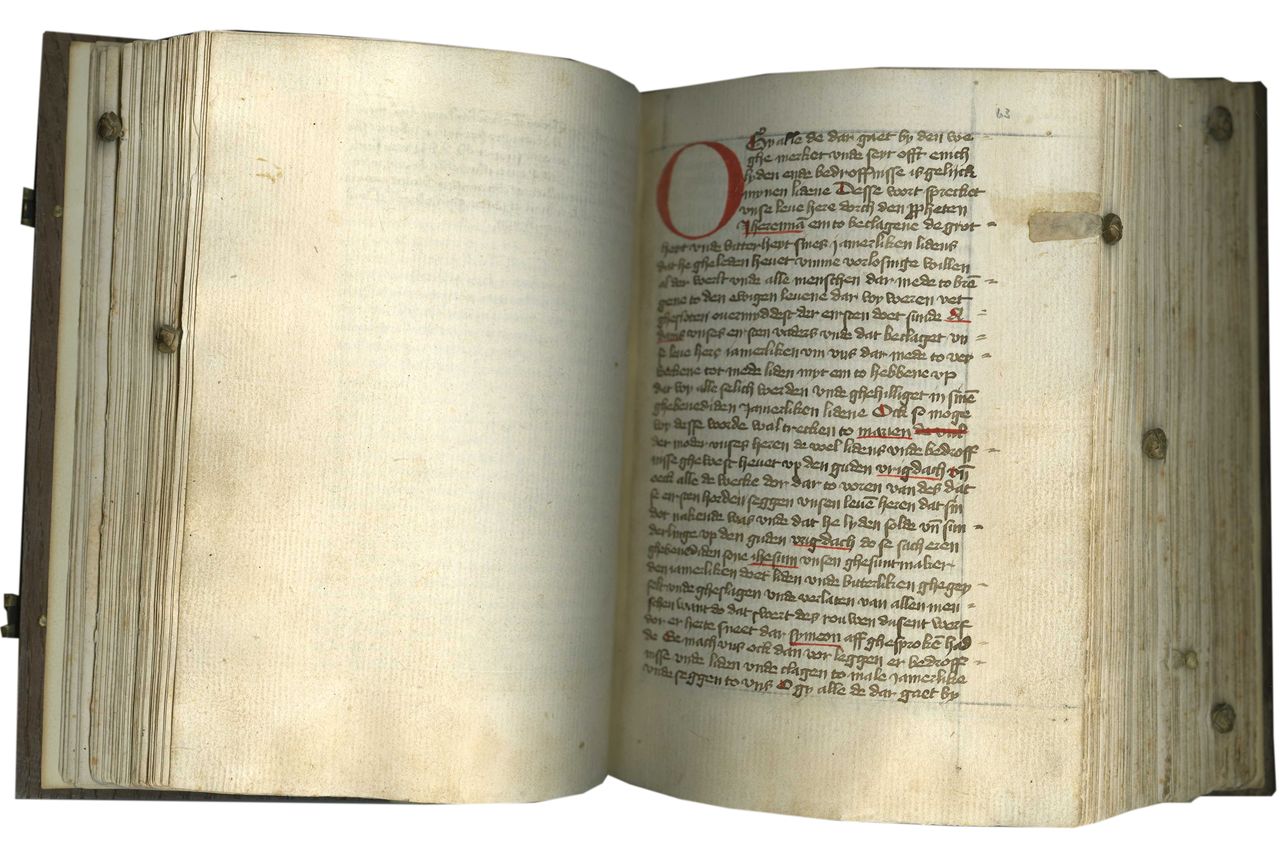 63
O Gy alle de dar gaet by den we=
ghe merket unde seyt offt enich
lyden ende bedroffnisse is gelijck
mynen lidene Desse wort sprecket
unse leve here dorch den ppheten
Jheremiā em to beclagene de grot=
heyt unde bitterheyt sines jamerliken lidens
dat he gheleden hevet umme vorlosinge willen
al der werlt unde alle menschen dar mede to brē=
gene to den ewigen levene dar wy weren vet
ghesloten overmyddest der ersten doet sunde A=
dams unses ersten vaders unde dat beclaget un=
se leve here jamerliken um uns dar mede to ver=
to mede liden myt em to hebbene up
dat wy alle selich werden unde ghehilliget in sinē
ghebenediden jamerliken lidene Ock so moge
wy desse worde wal trecken to marien
der moder unses heren de voel lidens unde bedroff=
nisse ghewest hevet up den guden vrigdach uñ
oeck alle de wecke dor dar to voren van des dat
se ersten horden seggen unsen levē heren dat sin
dot nakende was unde dat he lyden solde uñ sun=
derlinge up den guden vrigdach do se sach eren
ghebenediden sone ihesum unsen ghesuntmaker
den jamerliken doet liden unde bitterliken ghegey=
selt unde gheslagen unde verlaten van allen men=
schen want do dat swert des rouwen dusent werf
dor er herte sneet dar symeon aff ghesprokē had=
de Se mach uns ock dan vor leggen er bedroff=
nisse unde liden unde clagen to male jamerlike
unde seggen to uns O gy alle de dar gaet by